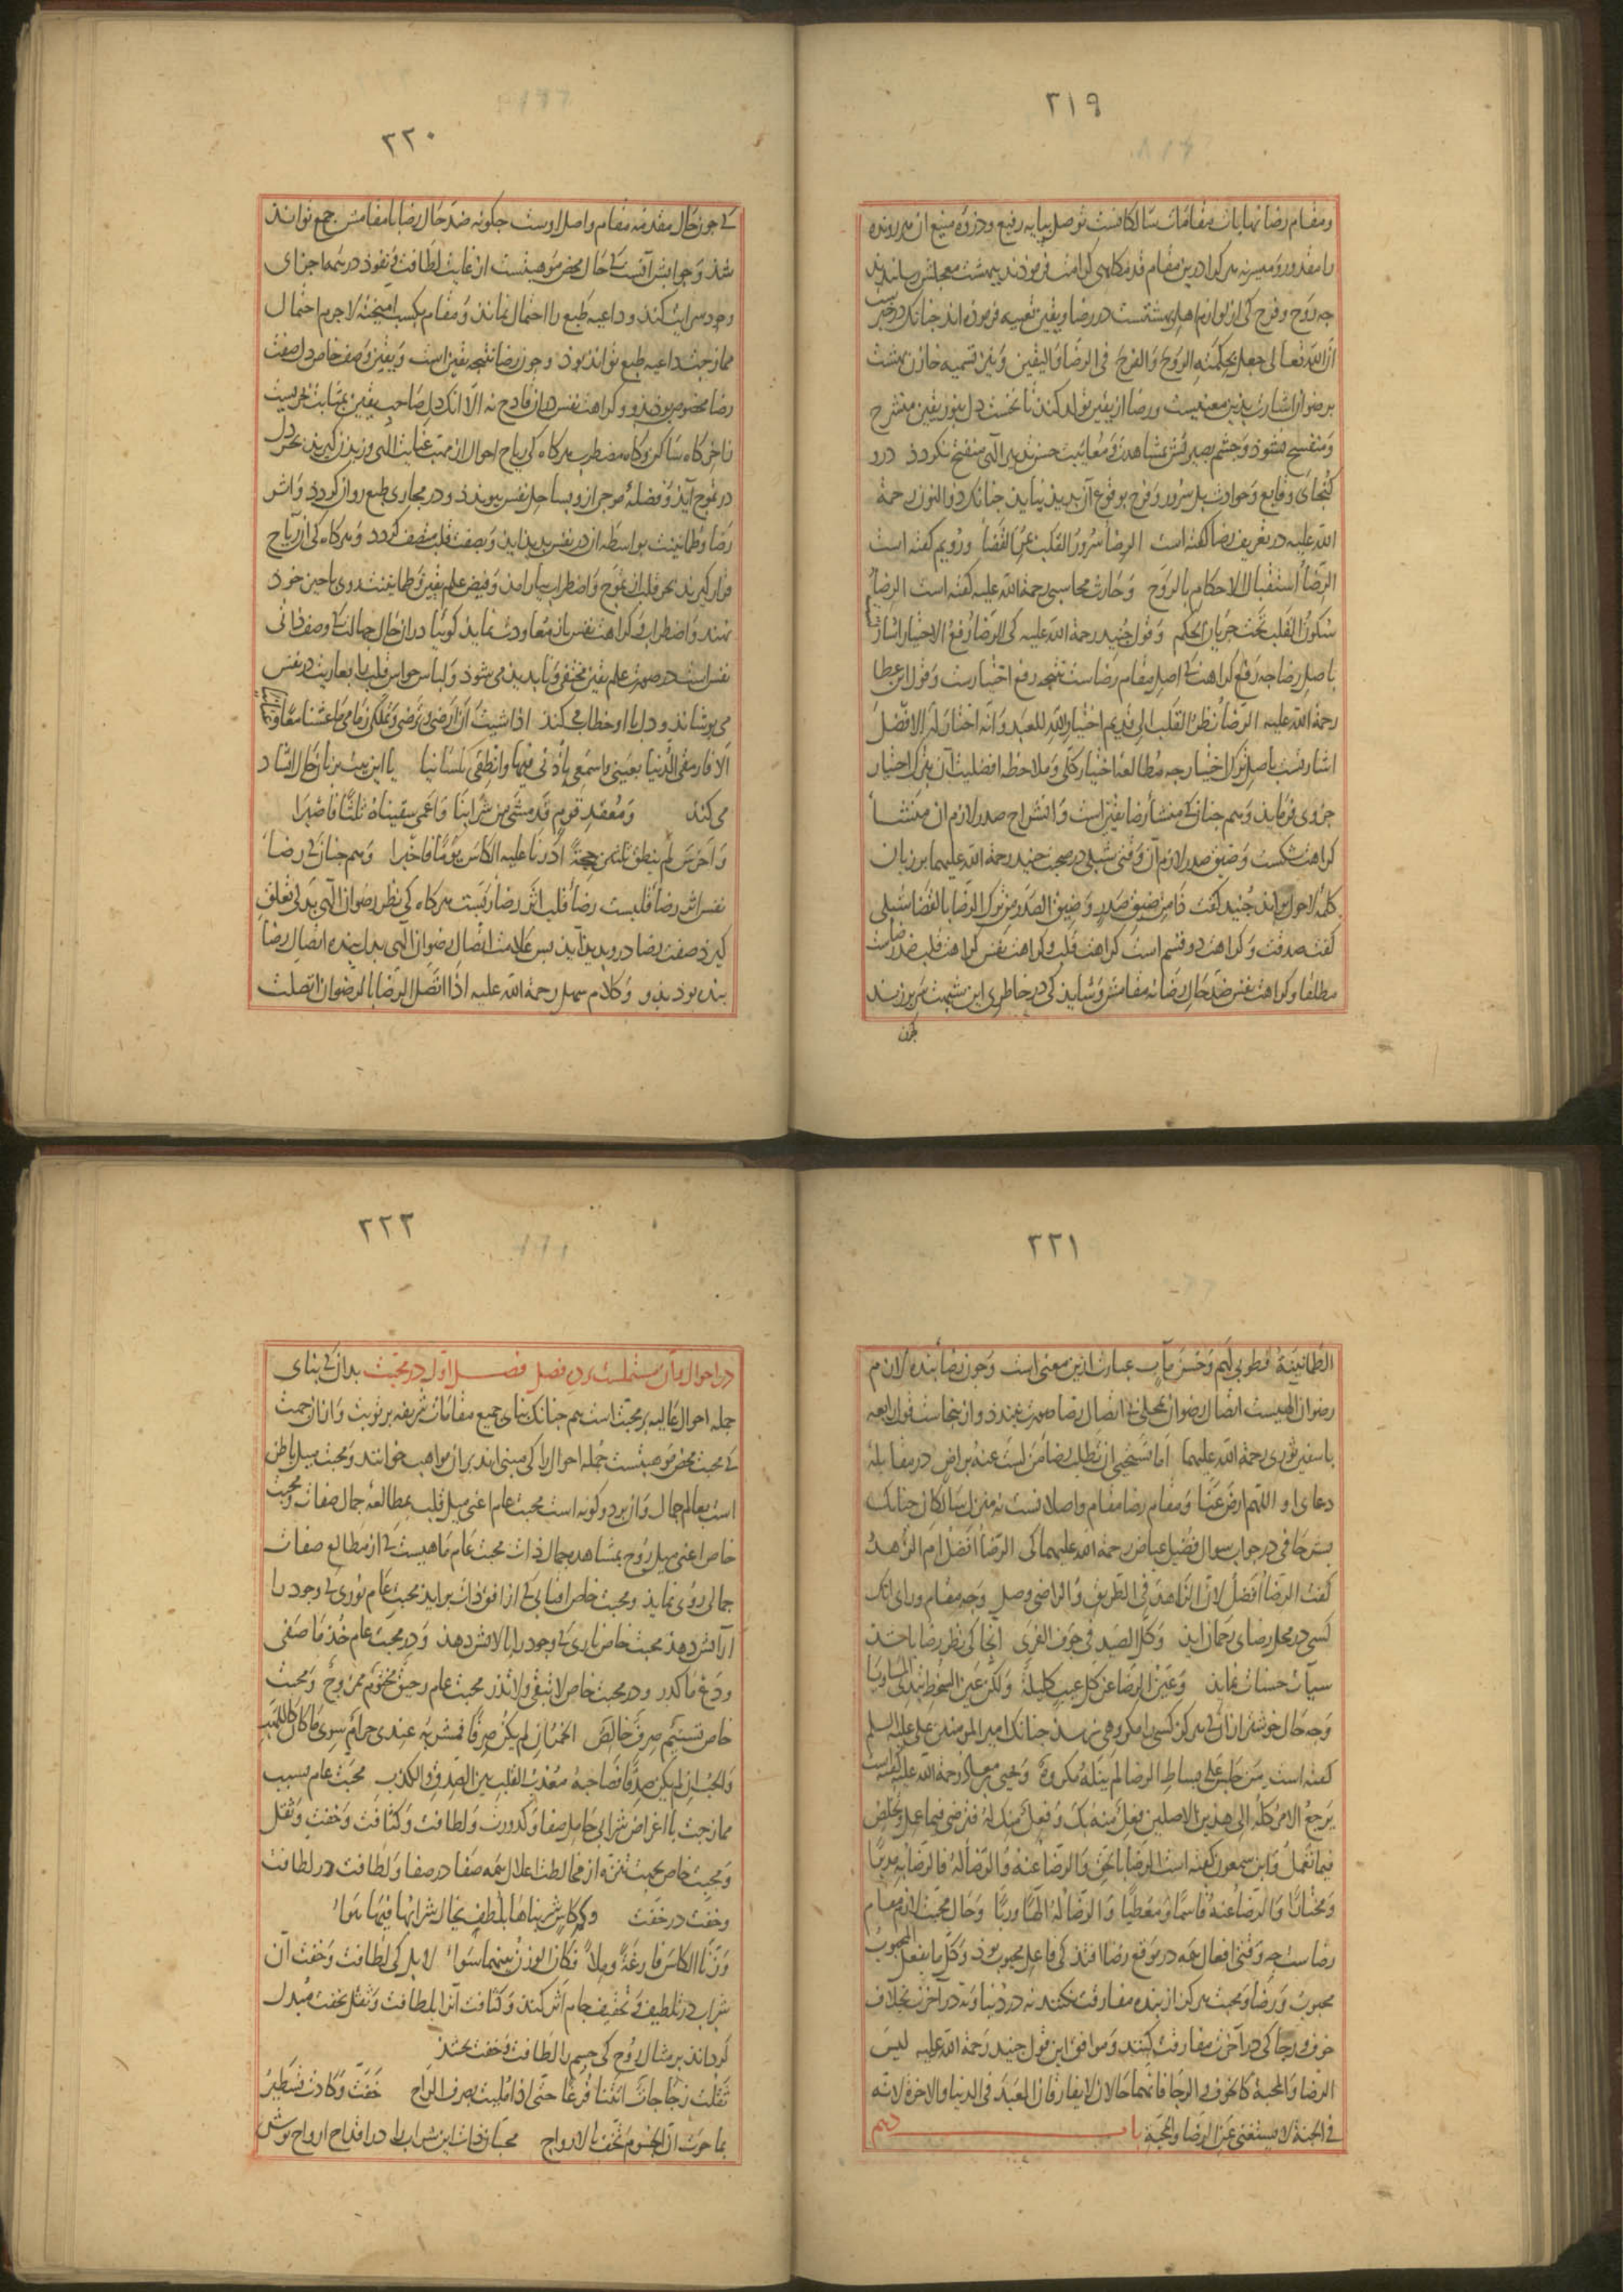 ۲۱۹
ومقام رضا نهایات مقامات سالکانست توصل بپایه رفیع و ذروه منیع آن هر رونده
را مقدور و میسر نه هر کرا درین مقام قدمگاهی کرامت فرمودند ببهشت معجلش رسانیدند
چه روح و فرح کی از لوازم اهل بهشتست در رضا و یقین تعبیه فرموده اند چنانک در خبرست
ان الله تعالی جعل بحکمته الروح والفرح فی الرضا والیقین و نیز تسمیه خازن بهشت
برضوان اشارت بدین معنیست و رضا از یقین تولد کند تا نخست دل بنور یقین منشرح
و منفسح نشود و چشم بصیرتش بمشاهدت و معاینت حسن تدبیر الهی منفتح نگردد درو
گنجائی وقایع و حوادث بل سرور و فرح بوقوع آن بدید نیاید چنانک ذوالنون رحمة
الله علیه در تعریف رضا گفته است الرضا سرور القلب بمر القضا و رویم گفته است
الرضا استقبال الاحکام بالروح و حارث محاسبی رحمة الله علیه گفته است الرضا
سکون القلب تحت جریان الحکم و قول جنید رحمة الله علیه کی الرضا رفع الاختیار اشارت
باصل رضا چه رفع کراهت کی اصل مقام رضاست نتیجه رفع اختیارست و قول ابن عطا
رحمة الله علیه الرضا نظر القلب الی قدیم اختیار الله للعبد وانه اختار له الافضل
اشارتست باصل ترک اختیار چه مطالعه اختیار کلی و ملاحظه افضلیت آن بترک اختیار
جزوی فرماید و هم چنان کی منشأ رضا یقین است و انشراح صدر لازم آن منشأ
کراهت شکست و ضیق صدر لازم آن وقتی شبلی در صحبت جنید رحمة الله علیهما بر زبان
کلمه لاحول براند جنید گفت ذا من ضیق صدر و ضیق الصدر من ترک الرضا بالقضا شبلی
گفت صدقت و کراهت دو قسم است کراهت قلب و کراهت نفس کراهت قلب ضد رضاست
مطلقا و کراهت نفس ضد حال رضا نه مقامش و شاید کی در خاطری این شبهت سر برزند
چون
۲۲۰
کی چون حال مقدمه مقام واصل اوست چگونه ضد حال رضا با مقامش جمع تواند
شد و جوابش آنست کی حال محض موهبتست از غایت لطافت و نفوذ در همه اجزای
وجود سرایت کند و داعیه طبع را احتمال نماند و مقام بکسب آمیخته لاجرم احتمال
ممازجت داعیه طبع تواند بود و چون رضا نتیجه یقین است و یقین وصف خاص دل صفت
رضا مخصوص بود بدو و کراهت نفس در آن قادح نه الا آنک دل صاحب یقین بمثابت بحریست
زاخر گاه ساکن و گاه مضطرب هر گاه کی ریاح احوال از مهب عنایت الهی وزیدن گیرد بحر دل
در تموج آید و فضله موج از و بساحل نفس پیوندد و در مجاری طبع روان گردد و اثر
رضا و طمانینت بواسطه آن در نفس بدید آید و بصفت قلب متصف گردد و هر گاه کی آن ریاح
قرار گیرند بحر قلب از تموج و اضطراب بیارامد و فیض علم یقین و طمانینتش روی باحیز خود
نهد و اضطراب و کراهت نفس باز معاودت نماید گوئیا در آن حال جهالت کی وصف ذاتی
نفس است در صورت علم یقین مختفی و ناپدید می شود و لباس حواس قلب را بعاریت در نفس
می پوشاند و دل با او خطاب می کند اذا شئت ان ارضی و ترضی وتملکی زمامی ما عشنا معا وعنانی
الا فارمقی الدنیا بعینی واسمعی باذنی فیها وانطقی بلسانیا یا این بیت بزبان حال انشاد
می کند ومقعد قوم قد مشی من شرابنا واعمی سقیناه ثلثا فابصرا
واخرس لم ینطق ثلثین حجة ادرنا علیه الکاس یوما فاخبرا و هم چنان کی رضاء
نفس اثر رضاء قلبست رضاء قلب اثر رضاء ربست هر گاه کی نظر رضوان الهی بدلی تعلق
گیرد صفت رضا درو بدید آید پس علامت اتصال رضوان الهی بدل بنده اتصال رضاء
بنده بود بدو و کلام سهل رحمة الله علیه اذا اتصل الرضا بالرضوان اتصلت
۲۲۱
الطمانینة فطوبی لهم وحسن مآب عبارت ازین معنی است و چون رضاء بنده لازم
رضوان الهیست اتصال رضوان بمحلی بی اتصال رضا صورت نبندد و از ینجاست قول رابعه
با سفین ثوری رحمة الله علیهما اما تستحیی ان تطلب رضا من لست عنه براض در مقابله
دعای او اللهم ارض عنا و مقام رضا مقام واصلانست نه منزل سالکان چنانک
بشر حافی در جواب سوال فضیل عیاض رحمة الله علیهما کی الرضا افضل ام الزهد
گفت الرضا افضل لان الزاهد فی الطریق والراضی وصل و چه مقام ورای آنک
کسی در محل رضای رحمان آید وکل الصید فی جوف الفری آنجا کی نظر رضا باشد
سیآت حسنات نماید وعین الرضا عن کل عیب کلیلة ولکن عین السخط تبدی المساویا
و چه حال خوشتر از آن کی هرگز کسی را مکروهی نرسد چنانک امیر المومنین علی علیه السلم
گفته است من جلس علی بساط الرضا لم ینله مکروه و یحیی معاذ رحمة الله علیه گفته است
یرجع الامر کله الی هذین الاصلین فعل منه بک وفعل منک له فترضی فیما عمل وتخلص
فیما تعمل و ابن سمعون گفته است الرضا بالحق والرضا عنه والرضا له فالرضا به مدبرا
ومختارا والرضا عنه قاسما ومعطیا والرضا له الها وربا و حال محبت لازم مقام
رضاست چه وقتی افعال همه در موقع رضا افتد کی فاعل محبوب بود وکل ما یفعل المحبوب
محبوب و رضا و محبت هرگز از بنده مفارقت نکنند نه در دنیا و نه در آخرت بخلاف
خوف و رجا کی در آخرت مفارقت کنند و موافق این قول جنید رحمة الله علیه لیس
الرضا والمحبة کالخوف والرجا فانهما حالان لا یفارقان العبد فی الدنیا والاخرة لانه
فی الجنة لا یستغنی عن الرضا والمحبة باب دهم
۲۲۲
در احوال و آن مشتملست بر ده فصل فصل اول در محبت بدان کی بنای
جمله احوال عالیه بر محبت است هم چنانک بنای جمیع مقامات شریفه بر توبت و از آن جهت
کی محبت محض موهبتست جمله احوال را کی مبنی اند بر آن مواهب خوانند و محبت میل باطن
است بعالم جمال و آن بر دو گونه است محبت عام اعنی میل قلب بمطالعه جمال صفات و محبت
خاص اعنی میل روح بمشاهده جمال ذات محبت عام ماهیست کی از مطالع صفات
جمالی روی نماید و محبت خاص افتابی کی از افق ذات براید محبت عام نوری کی وجود را
آرایش دهد محبت خاص ناری کی وجود را پالایش دهد و در محبت عام خذ ما صفی
ودع ما کدر و در محبت خاص لا تبقی ولا تذر محبت عام رحیق مختوم ممزوج و محبت
خاص تسنیم صرف خالص الخمر ان لم یکن صرفا فمشربه عندی حرام سوی ما کان کاللهب
والحب ان لم یکن صدقا فصاحبه معذب القلب بین الصدق والکذب محبت عام بسبب
ممازجت با اغراض شرابی حامل صفا و کدورت و لطافت و کثافت و خفت و ثقل
و محبت خاص بجهت تنزه از مخالطت اعلال همه صفا در صفا و لطافت در لطافت
و خفت در خفت وکاس شربناها بلطف نخال شرابها فیها هواء
وزنا الکاس فارغة وملأ فکان الوزن بینهما سواء لا بل کی لطافت و خفت آن
شراب در تلطیف و تخفیف جام اثر کند و کثافت آنرا بلطافت و ثقل بخفت مبدل
گرداند بر مثال روح کی جسم را لطافت و خفت بخشد
ثقلت زجاجات اتتنا فرغا حتی اذا ملیت بصرف الراح خفت وکادت فتطیر
بما حوت ان الجسوم تخف بالارواح محبان ذات این شراب را در اقداح ارواح نوش